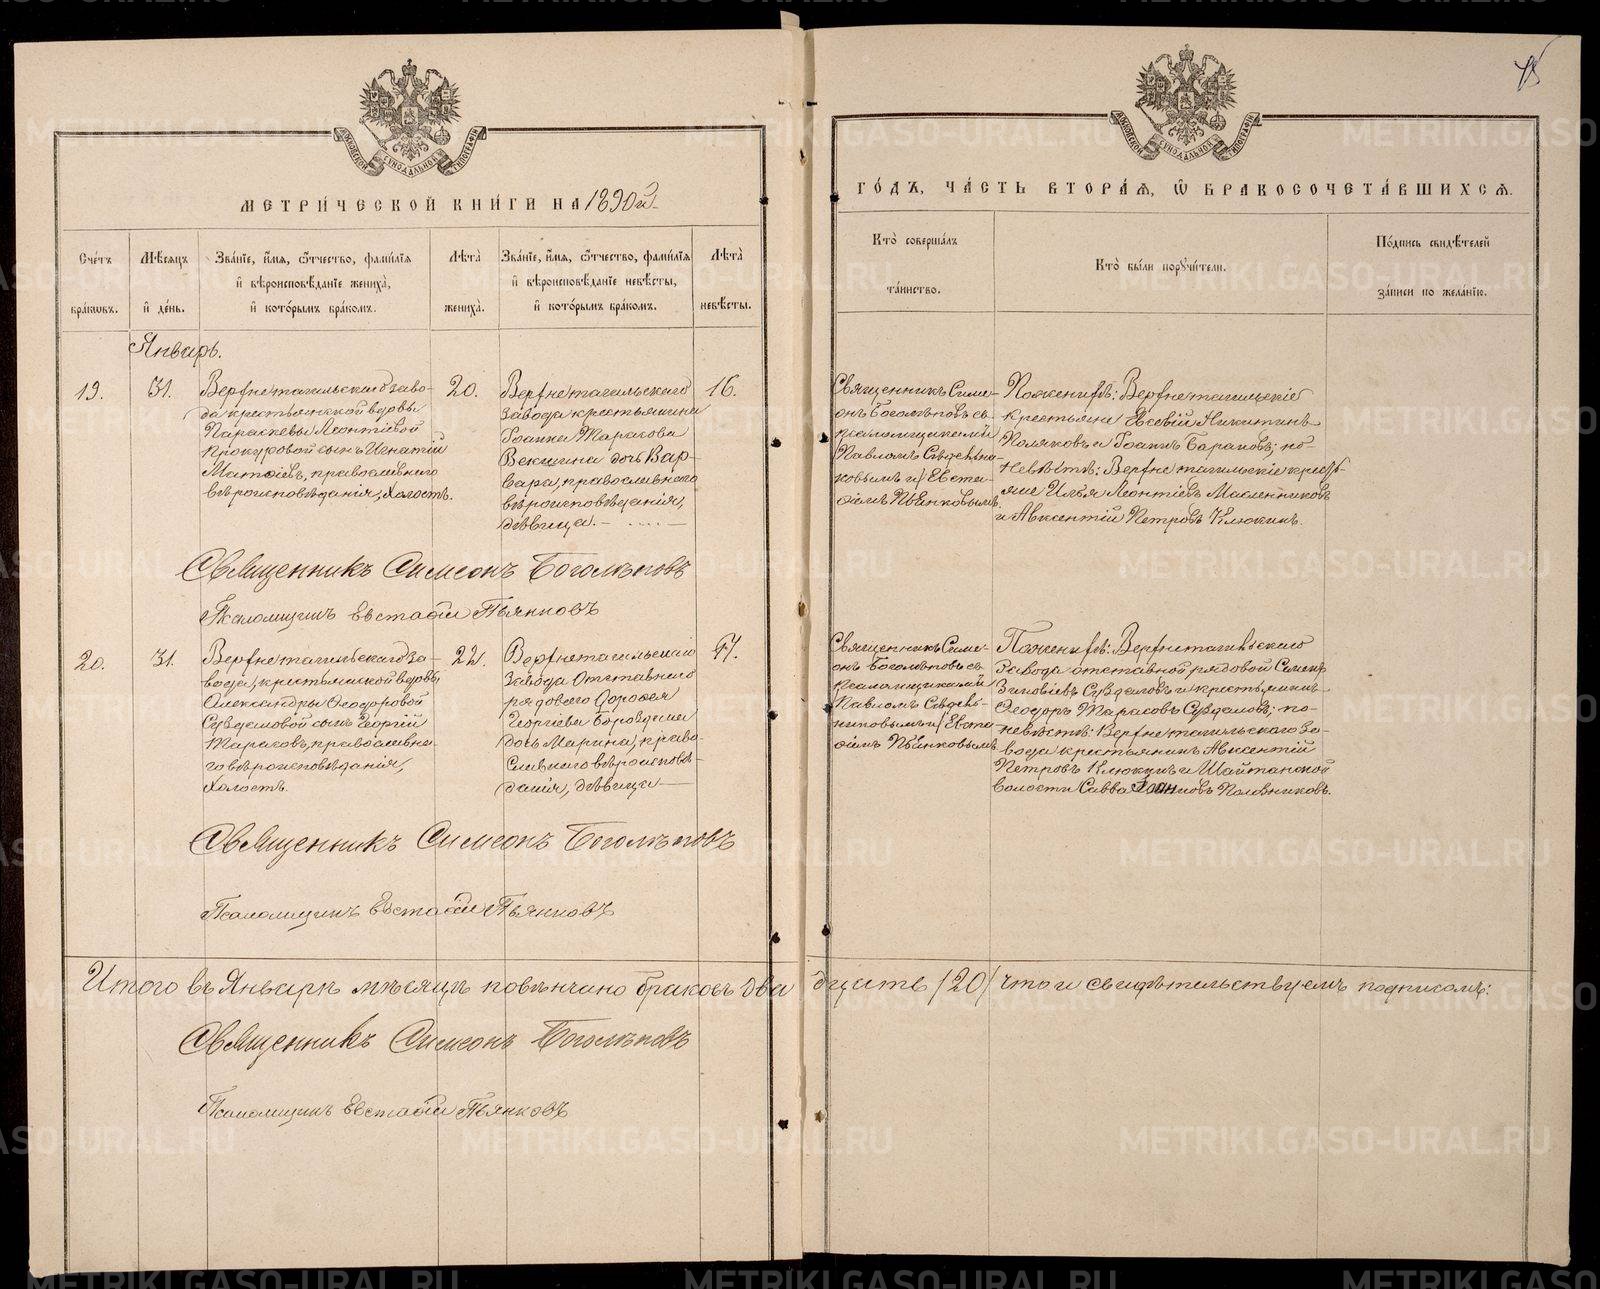 МЕТРИ́ЧЕСКОЙ КНИ́ГИ НА 1890й
Сче́тъ бра́кωвъ.
Мѣ́сяцъ и҆ де́нь.
Зва́нїе, и҆́мѧ, ѻ҆́тчество, фами́лїѧ и҆ вѣроисповѣ́данїе жениха̀, и҆ кото́рымъ бра́комъ.
Лѣ́та жениха̀.
Зва́нїе, и҆́мѧ, ѻ҆́тчество, фами́лїѧ и҆ вѣроисповѣ́данїе невѣ́сты, и҆ кото́рымъ бра́комъ.
Лѣ́та невѣ́сты.
Январь.
19.
31.
Верхнетагильскаго заво-
да крестьянской вдовы
Параскевы Леонтіевой
Прокуровой сынъ Игнатій
Матѳіевъ, православнаго
вѣроисповѣданія, холостъ.
20.
Верхнетагильскаго
завода крестьянина
Іоанна Тарасова
Векшина дочь Вар-
вара, православнаго
вѣроисповѣданія,
дѣвица.
16.
Священникъ Симеонъ Боголѣповъ
Псаломщикъ Евстаѳій Пьянковъ
20.
31.
Верхнетагильскаго за-
вода, крестьянской вдовы
Александры Ѳеодоровой
Суздаловой сынъ Георгій
Тарасовъ, православна-
го вѣроисповѣданія,
холостъ.
22.
Верхнетагильскаго
завода отставнаго
рядового Дороѳея
Георгіева
дочь Марина, право-
славнаго вѣроисповѣ-
данія, дѣвица
17.
Священникъ Симеонъ Боголѣповъ
Псаломщикъ Евстаѳій Пьянковъ
Итого въ Январѣ мѣсяцѣ повѣнчано браковъ два
Священникъ Симеонъ Боголѣповъ
Псаломщикъ Евстаѳій Пьянковъ
ГО́ДЪ, ЧА́СТЬ ВТОРА́Ѧ, Ѽ БРАКОСОЧЕТА́ВШИХСѦ.
Кто̀ соверша́лъ та́инство.
Кто̀ бы́ли порꙋчи́тели.
По́дпись свидѣ́телей за́писи по жела́нїю.
Священникъ Симе-
онъ Боголѣповъ съ
псаломщиками
Павломъ
и Евста-
ѳіемъ Пьянковымъ.
По женихѣ: Верхнетагильскіе
крестьяне Евсевій Никитинъ
Поляковъ и Іоаннъ Барановъ; по
невѣстѣ: Верхнетагильскіе кресть-
яне Илья Леонтіевъ Масленниковъ
и Авксентій Петровъ Клюкинъ.
Священникъ Симе-
онъ Боголѣповъ съ
псаломщиками
Павломъ
и Евста-
ѳіемъ Пьянковымъ.
По женихѣ: Верхнетагильскаго
завода отставной рядовой Симеонъ
Зиновіевъ Суздаловъ и крестьянинъ
Ѳеодоръ Тарасовъ Суздаловъ; по
невѣстѣ: Верхнетагильскаго за-
вода крестьянинъ Авксентій
Петровъ Клюкинъ и Шайтанской
волости Савва Іоанновъ Половниковъ.
дцать /20/ что и свидѣтельствуемъ подписомъ:
METRIKI.GASO-URAL.RU